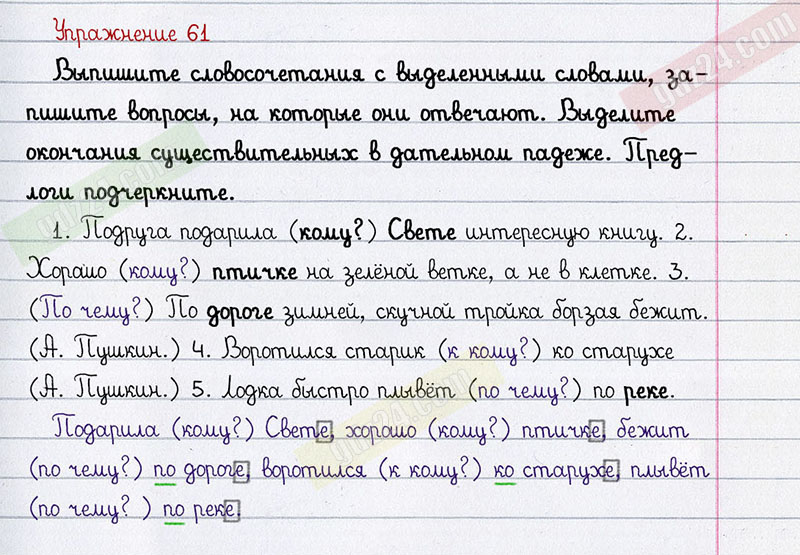 Упражнение 61
Выпишите словосочетания с выделенными словами, за-
пишите вопросы, на которые они отвечают. Выделите
окончания существительных в дательном падеже. Пред-
логи подчеркните.
1. Подруга подарила (кому?) Свете интересную книгу. 2.
Хорошо (кому?) птичке на зелёной ветке, а не в клетке. 3.
(По чему?) По дороге зимней, скучной тройка борзая бежит.
(А. Пушкин.) 4. Воротился старик (к кому?) ко старухе
(А. Пушкин.) 5. Лодка быстро плывёт (по чему?) по реке.
Подарила (кому?) Свете, хорошо (кому?) птичке, бежит
(по чему?) по дороге, воротился (к кому?) ко старухе, плывёт
(по чему? ) по реке.